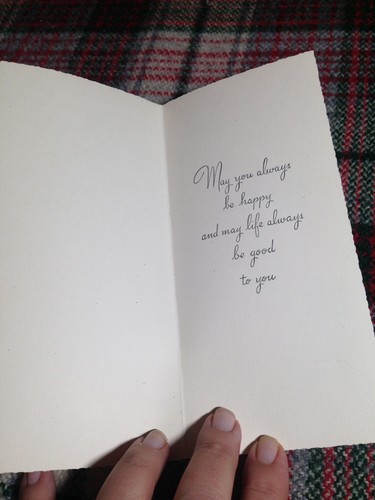 May you always
be happy
and may life always
be good
to you